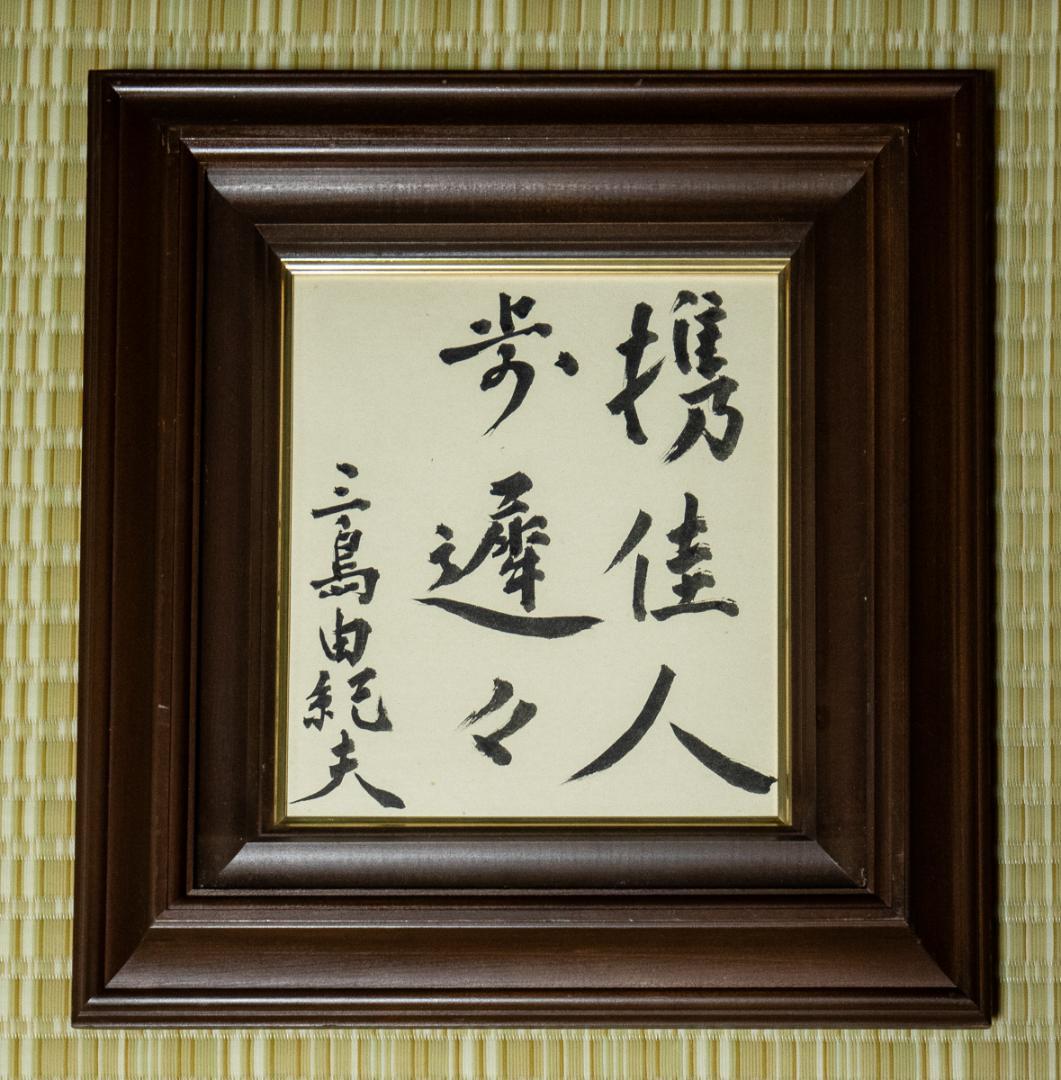 携佳人
歩遲々
三島由紀夫